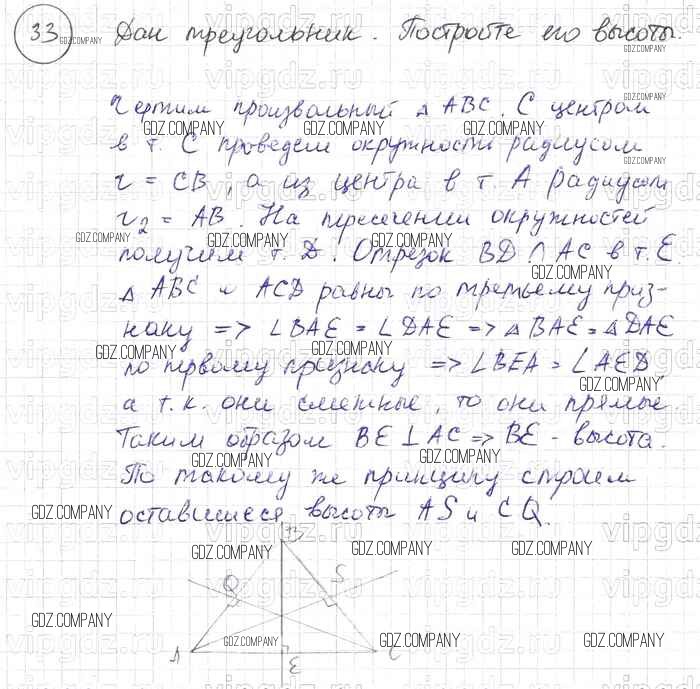 33 Дан треугольник. Постройте его высоты.
Чертим произвольный △ ABC. С центром
в т. C проведем окружность радиусом
r = CB, а из центра в т. A радиусом
r₂ = AB. На пересечении окружностей
получим т. D. Отрезок BD ∩ AC в т. E.
△ ABC и ACD равны по третьему приз-
наку => ∠BAE = ∠DAE => △ BAE = △ DAE
по первому признаку => ∠BEA = ∠AED,
а т.к. они смежные, то они прямые
Таким образом BE ⊥ AC => BE - высота.
По такому же принципу строим
оставшиеся высоты AS и CQ.
B
Q
S
A
E
C
GDZ.COMPANY
vipgdz.ru